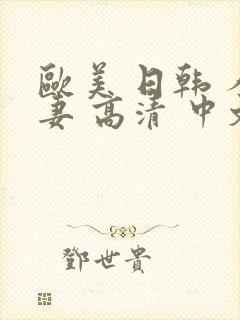 歐美 日韩
妻 高清 中
鄧世貴